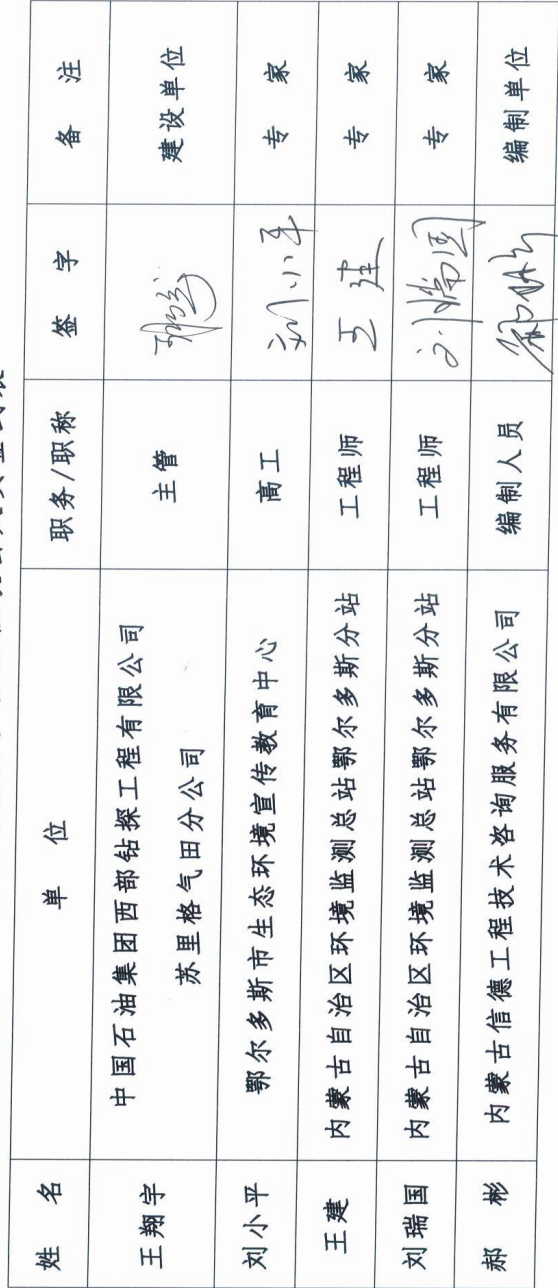 姓 名 单 位 职务/职称 签 字 备 注
王翔宇 中国石油集团西部钻探工程有限公司 主管 建设单位
苏里格气田分公司
刘小平 鄂尔多斯市生态环境宣传教育中心 高工 刘小平 专 家
王建 内蒙古自治区环境监测总站鄂尔多斯分站 工程师 王建 专 家
刘瑞国 内蒙古自治区环境监测总站鄂尔多斯分站 工程师 刘瑞国 专 家
郝 彬 内蒙古信德工程技术咨询服务有限公司 编制人员 编制单位